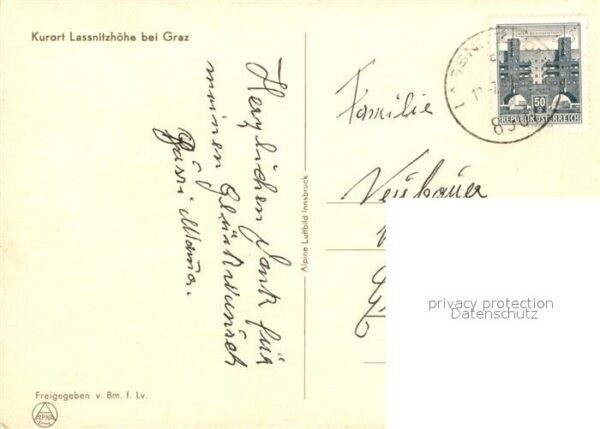 Kurort Lassnitzhöhe bei Graz
Herzlichen Dank für
meinen Glückwunsch
Bussi Mama.
Alpine Luftbild Innsbruck
Freigegeben v. Bm. f. Lv.
ALPINE
LASSNITZ
830
50
g
REPUBLIK ÖSTERREICH
Familie
Neubauer
privacy protection
Datenschutz